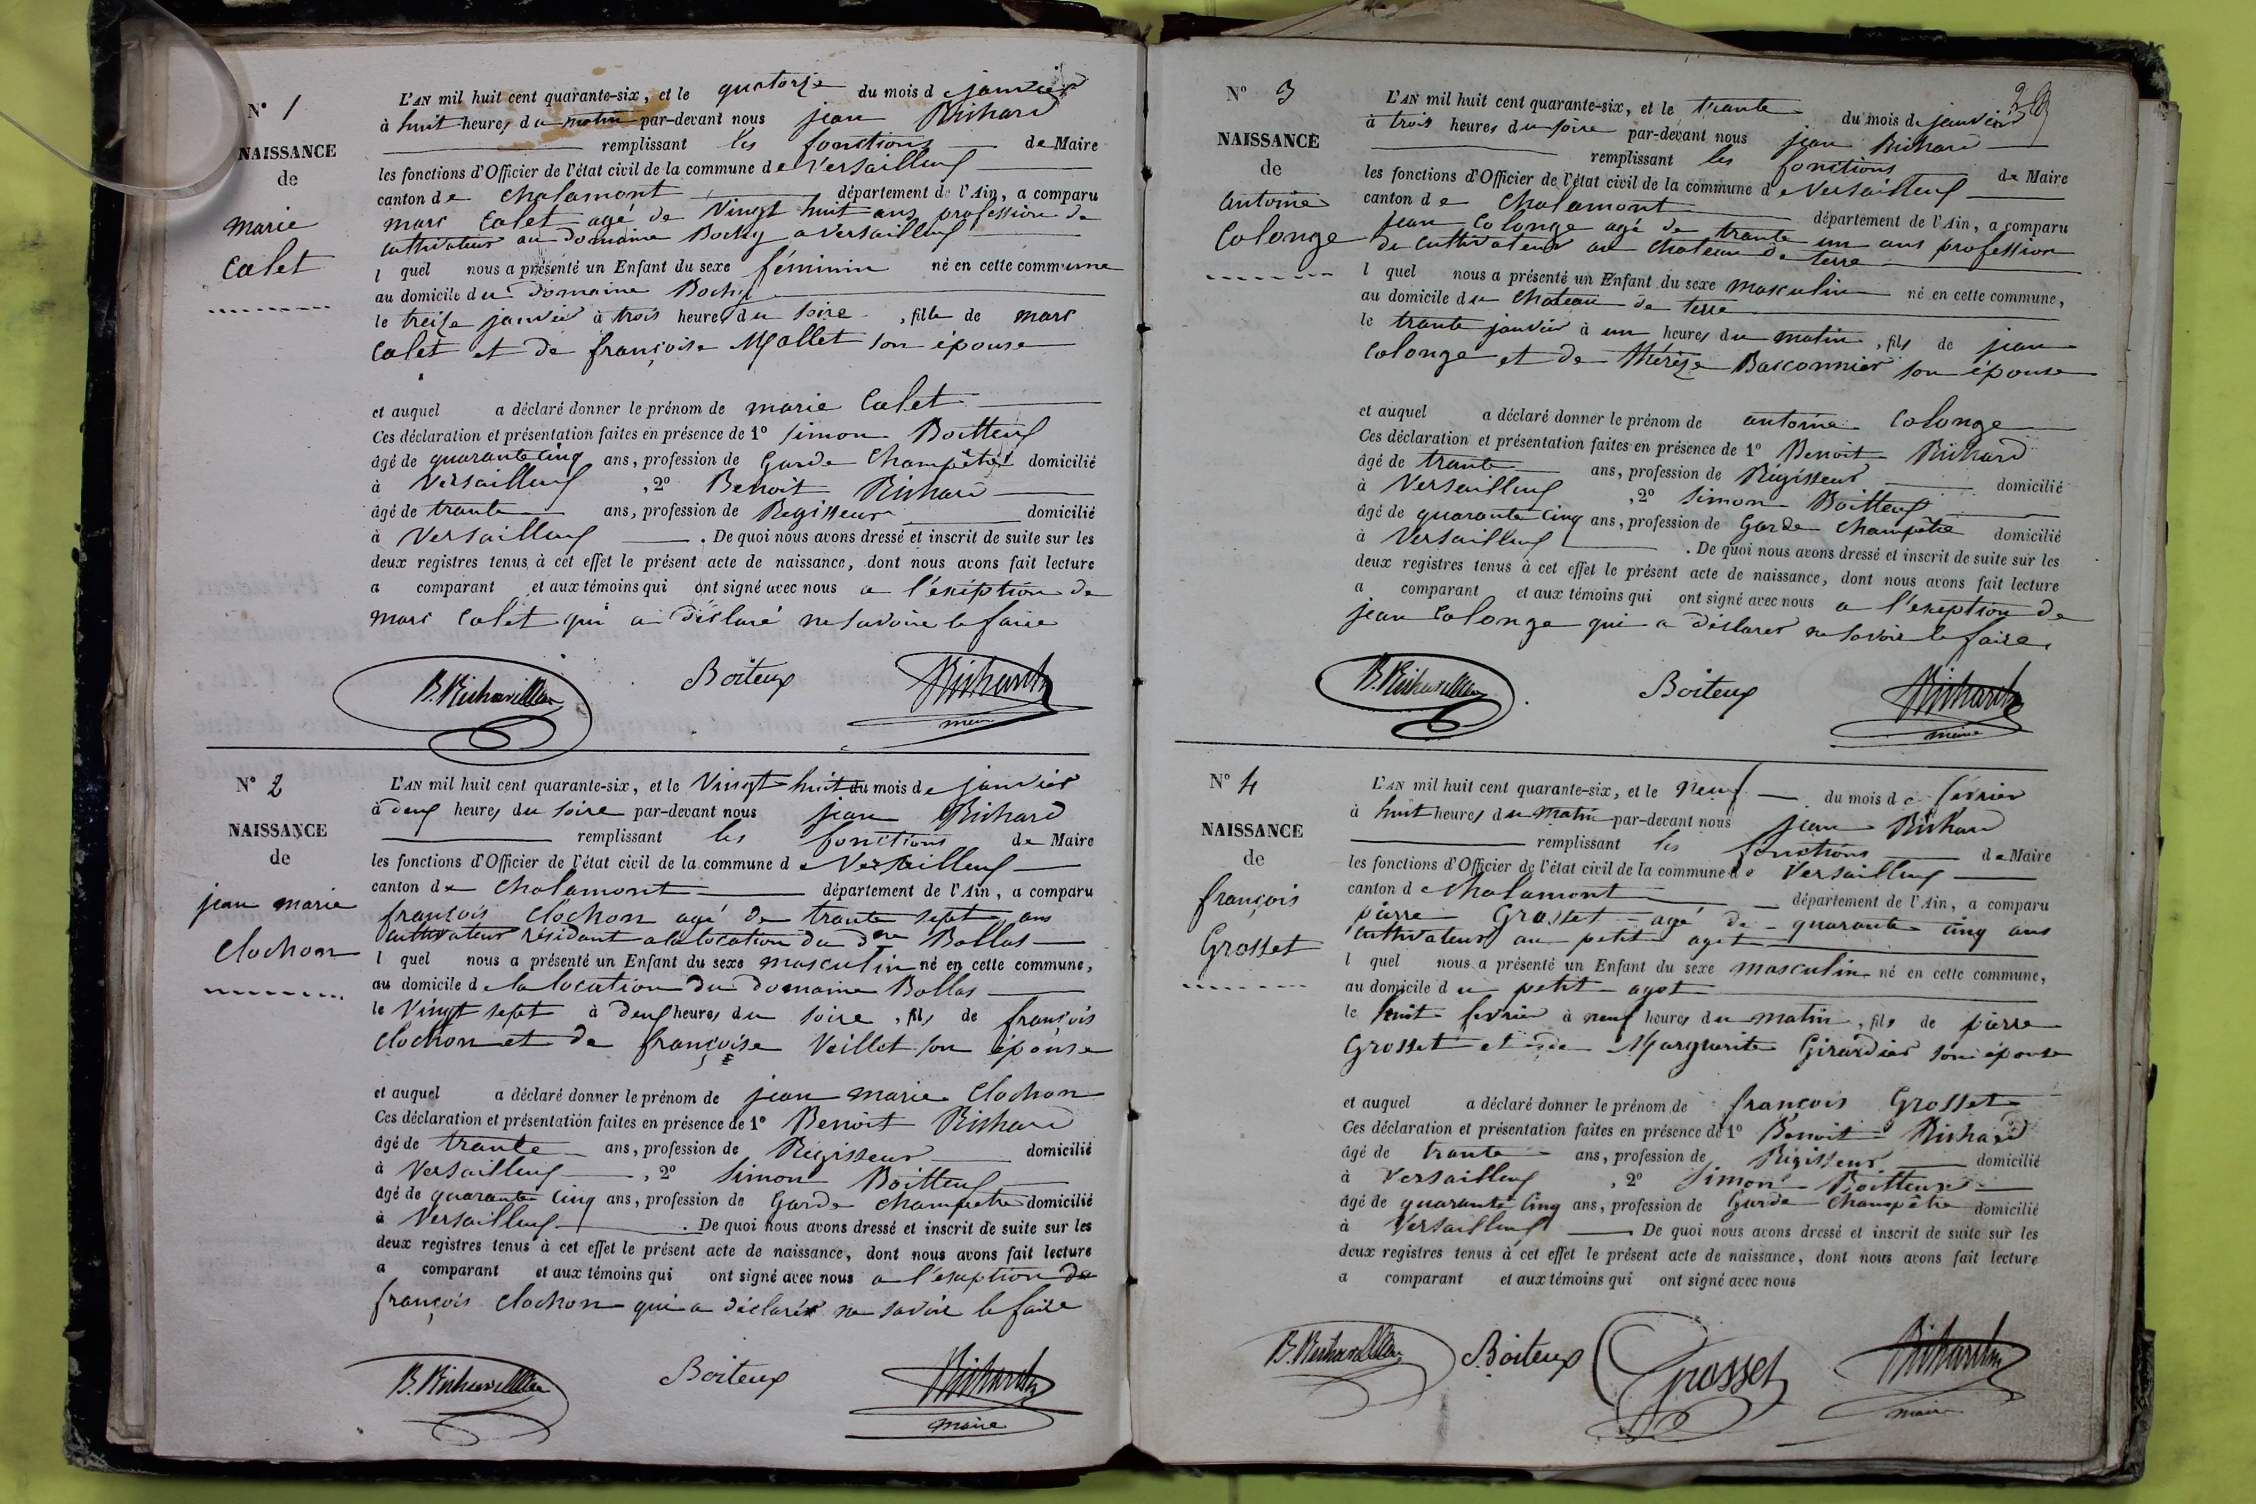 N° 1
NAISSANCE
de
marie
Calet
L'AN mil huit cent quarante-six, et le quatorze du mois d janvier
à huit heures du matin par-devant nous jean Richard
remplissant les fonctions de Maire
les fonctions d'Officier de l'état civil de la commune de Versailleux
canton de Chalamont département de l'Ain, a comparu
marc Calet agé de Vingt huit ans profession de
cultivateur au Domaine Bochy a versailleux
l quel nous a présenté un Enfant du sexe féminin né en cette commune
au domicile du Domaine Bochy
le treize janvier à trois heures du soire, fille de marc
Calet et de françoise Mollet son épouse
et auquel a déclaré donner le prénom de marie Calet
Ces déclaration et présentation faites en présence de 1° simon Boitteux
âgé de quarante cinq ans, profession de Garde Champêtre domicilié
à Versailleux, 2° Benoit Richard
âgé de trante ans, profession de Regisseur domicilié
à Versailleux. De quoi nous avons dressé et inscrit de suite sur les
deux registres tenus à cet effet le présent acte de naissance, dont nous avons fait lecture
a comparant et aux témoins qui ont signé avec nous a l'exeption de
marc Calet qui a déclaré ne savoire le faire
B. Richard Boiteux Richard
maire
N° 2
NAISSANCE
de
jean marie
Clochon
L'AN mil huit cent quarante-six, et le Vingt huit du mois de janvier
à deux heures du soire par-devant nous jean Richard
remplissant les fonctions de Maire
les fonctions d'Officier de l'état civil de la commune de Versailleux
canton de Chalamont département de l'Ain, a comparu
françois Clochon agé de trante sept ans
cultivateur résidant a la location du dne Bollas
l quel nous a présenté un Enfant du sexe masculin né en cette commune,
au domicile de la location du Domaine Bollas
le Vingt sept à deux heures du soire, fils de françois
Clochon et de françoise Veillet son épouse
et auquel a déclaré donner le prénom de jean marie Clochon
Ces déclaration et présentation faites en présence de 1° Benoit Richard
âgé de trante ans, profession de Régisseur domicilié
à Versailleux, 2° Simon Boitteux
âgé de quarante cinq ans, profession de Garde champetre domicilié
à Versailleux. De quoi nous avons dressé et inscrit de suite sur les
deux registres tenus à cet effet le présent acte de naissance, dont nous avons fait lecture
a comparant et aux témoins qui ont signé avec nous a l'exeption de
françois Clochon qui a déclaré ne savoir le faire
B. Richard Boiteux Richard
maire
N° 3
NAISSANCE
de
antoine
Colonge
L'AN mil huit cent quarante-six, et le trante du mois de janvier
à trois heures du soire par-devant nous jean Richard
remplissant les fonctions de Maire
les fonctions d'Officier de l'état civil de la commune de Versailleux
canton de Chalamont département de l'Ain, a comparu
jean Colonge agé de trante un ans profession
de cultivateur au chateau de terre
l quel nous a présenté un Enfant du sexe masculin né en cette commune,
au domicile du chateau de terre
le trante janvier à un heures du matin, fils de jean
Colonge et de thérèze Basconnier son épouse
et auquel a déclaré donner le prénom de antoine Colonge
Ces déclaration et présentation faites en présence de 1° Benoit Richard
âgé de trante ans, profession de Régisseur domicilié
à Versailleux, 2° Simon Boitteux
âgé de quarante cinq ans, profession de Garde champêtre domicilié
à Versailleux. De quoi nous avons dressé et inscrit de suite sur les
deux registres tenus à cet effet le présent acte de naissance, dont nous avons fait lecture
a comparant et aux témoins qui ont signé avec nous a l'exeption de
jean Colonge qui a déclarer ne savoir le faire.
B. Richard Boiteux Richard
maire
N° 4
NAISSANCE
de
françois
Grosset
L'AN mil huit cent quarante-six, et le neuf du mois de février
à huit heures du matin par-devant nous jean Richard
remplissant les fonctions de Maire
les fonctions d'Officier de l'état civil de la commune de Versailleux
canton de Chalamont département de l'Ain, a comparu
pierre Grosset agé de quarante cinq ans
cultivateur au petit agot
l quel nous a présenté un Enfant du sexe masculin né en cette commune,
au domicile du petit agot
le huit fevrier à neuf heures du matin, fils de pierre
Grosset et de Marguerite Girardier son épouse
et auquel a déclaré donner le prénom de françois Grosset
Ces déclaration et présentation faites en présence de 1° Benoit Richard
âgé de trante ans, profession de Régisseur domicilié
à Versailleux, 2° Simon Boitteux
âgé de quarante cinq ans, profession de Garde champêtre domicilié
à Versailleux De quoi nous avons dressé et inscrit de suite sur les
deux registres tenus à cet effet le présent acte de naissance, dont nous avons fait lecture
a comparant et aux témoins qui ont signé avec nous
B. Richard Boiteux Grosset Richard
maire